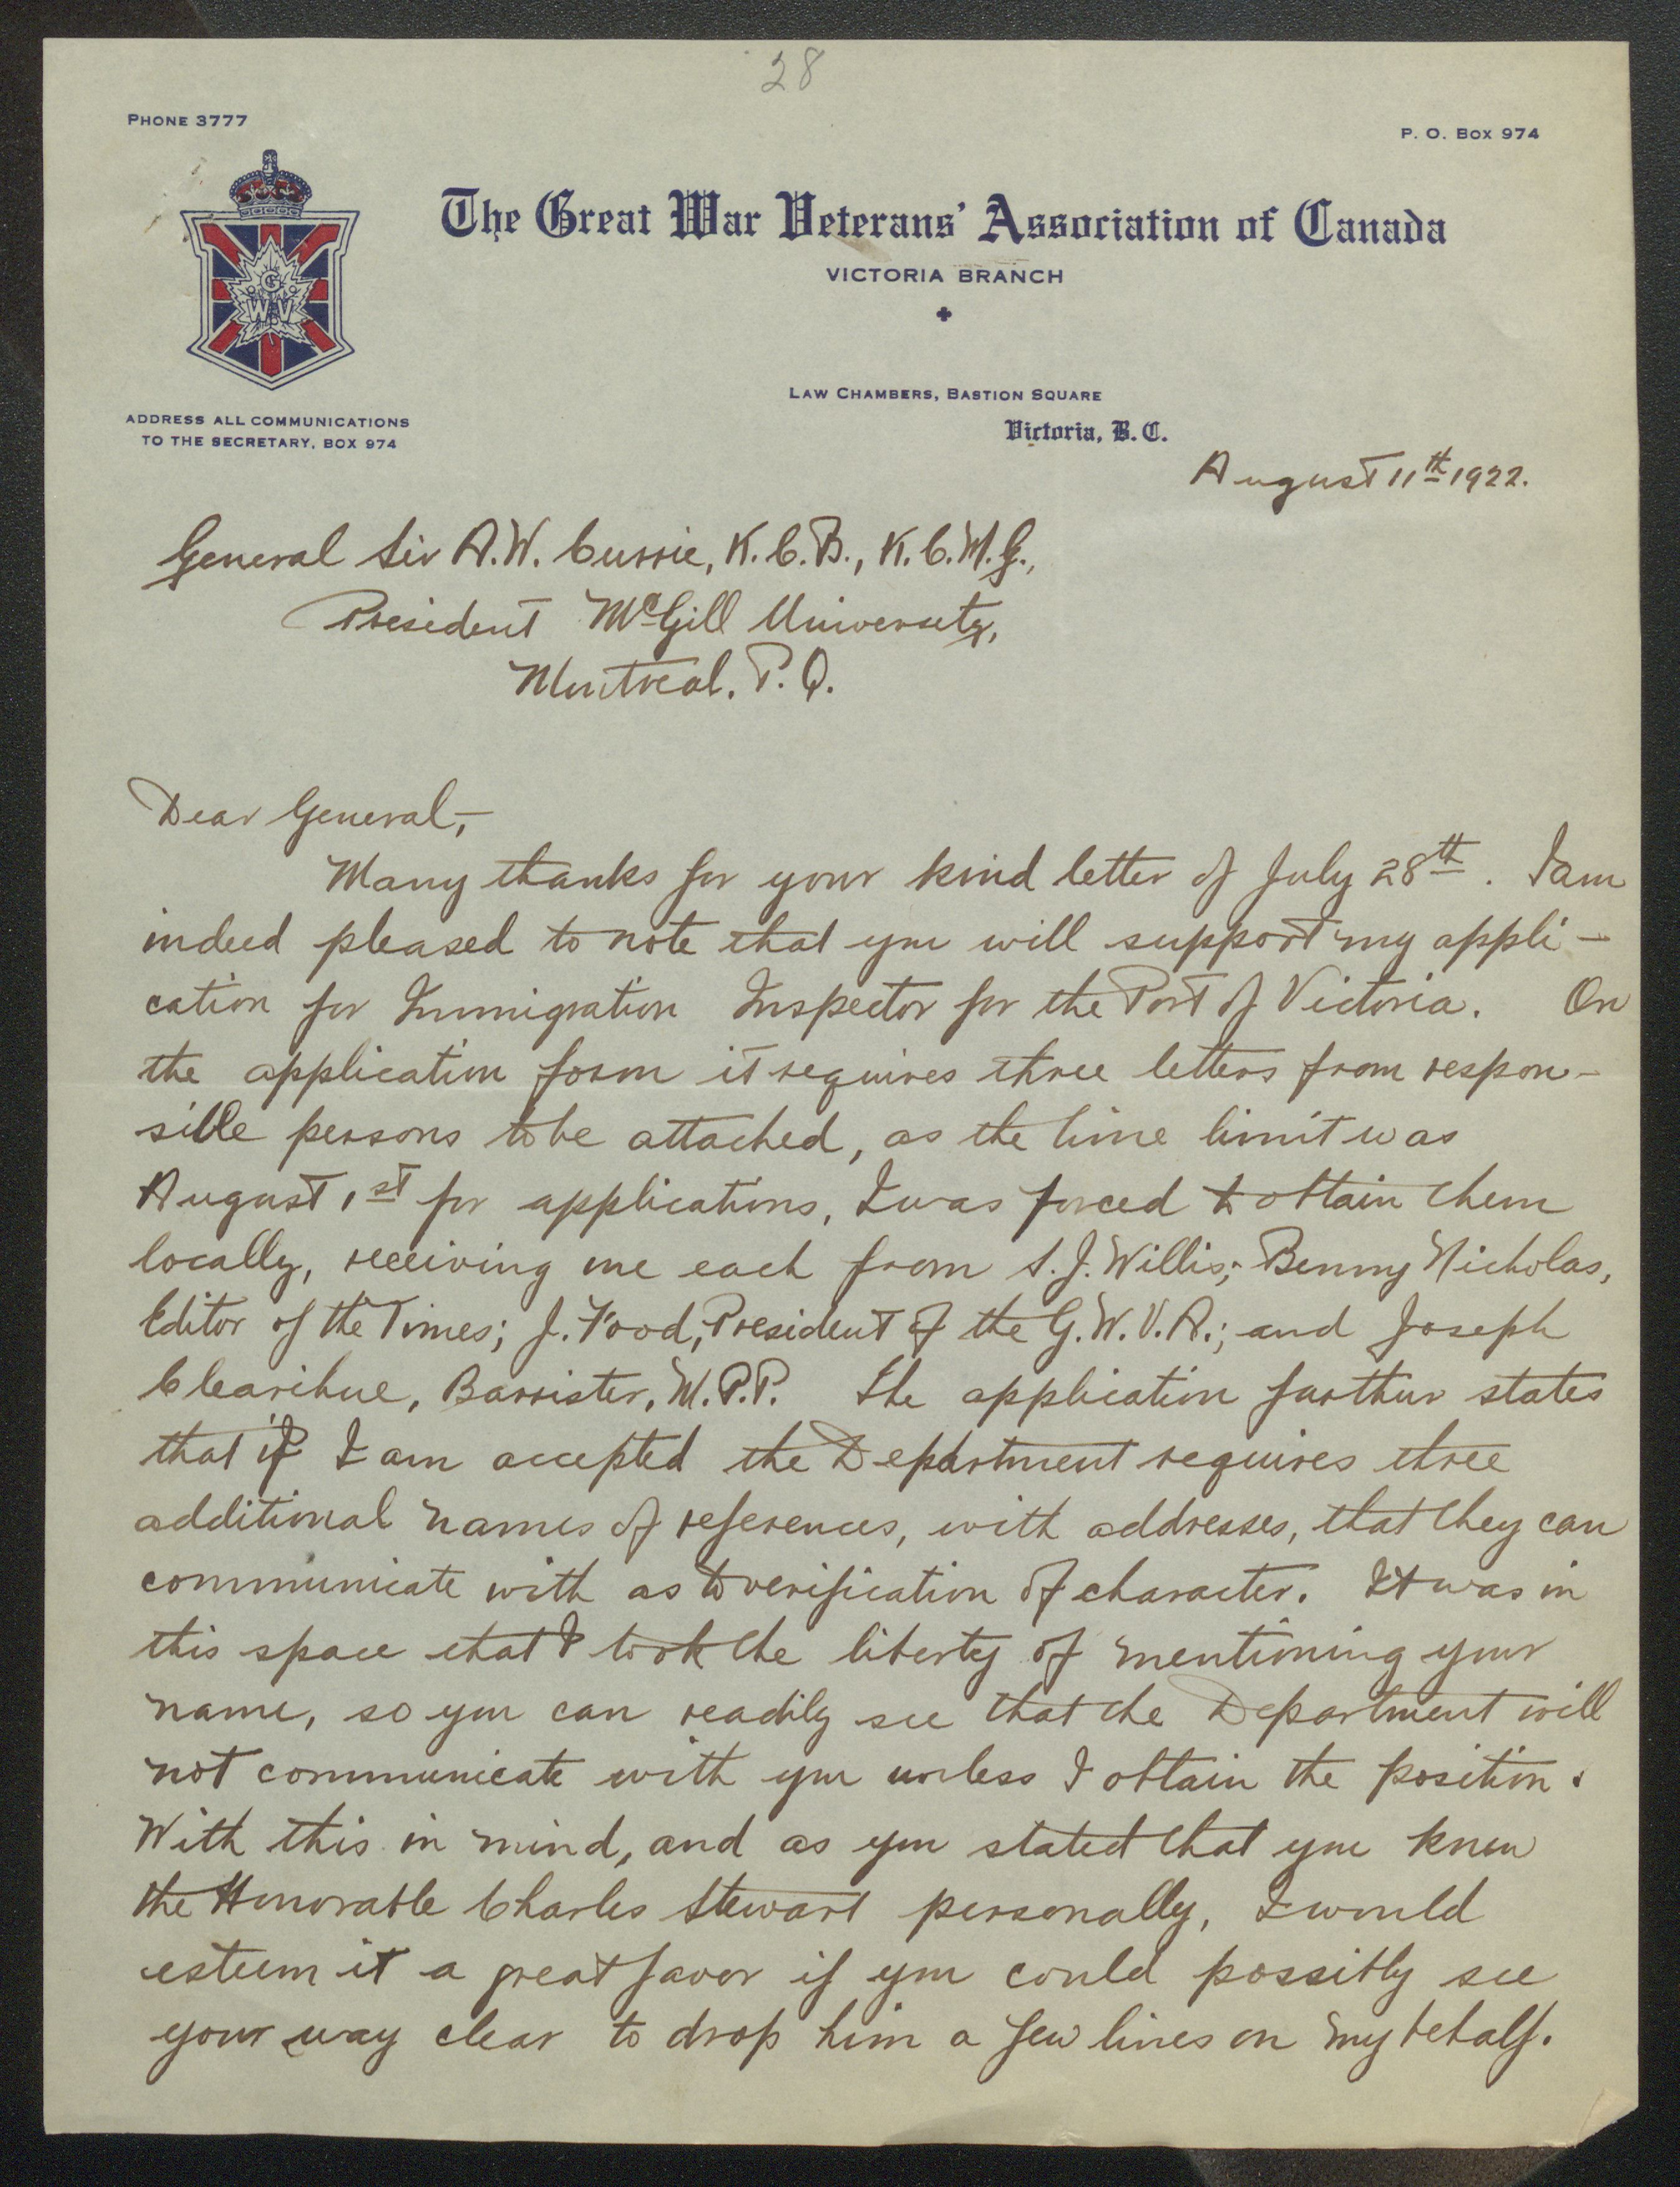 28
PHONE 3777
P. O. BOX 974
The Great War Veterans' Association of Canada
VICTORIA BRANCH
G
W.V
LAW CHAMBERS, BASTION SQUARE
ADDRESS ALL COMMUNICATIONS
TO THE SECRETARY, BOX 974
Victoria, B. C.
August 11th 1922.
General Sir A.W. Currie, K.C.B., K.C.M.G.,
President McGill University,
Montreal. P.Q.
Dear General,-
Many thanks for your kind letter of July 28th. I am
indeed pleased to note that you will support my appli-
cation for Immigration Inspector for the Port of Victoria. On
the application form it requires three letters from respon-
sible persons to be attached, as the time limit was
August 1st for applications, I was forced to obtain them
locally, receiving one each from S.J. Willis; Benny Nicholas,
Editor of the Times; J. Food, President of the G.W.V.A.; and Joseph
Clearihue, Barrister, M.P.P. The application further states
that if I am accepted the Department requires three
additional names of references, with addresses, that they can
communicate with as to verification of character. It was in
this space that I took the liberty of mentioning your
name, so you can readily see that the Department will
not communicate with you unless I obtain the position.
With this in mind, and as you stated that you knew
the Honorable Charles Stewart personally, I would
esteem it a great favor if you could possibly see
your way clear to drop him a few lines on my behalf.